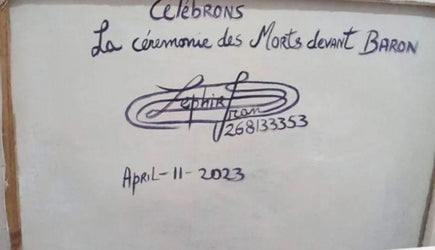 CELÉBRONS
La cérémonie des Morts devant BARON
Zephir
Jran
268133353
APRIL-11-2023